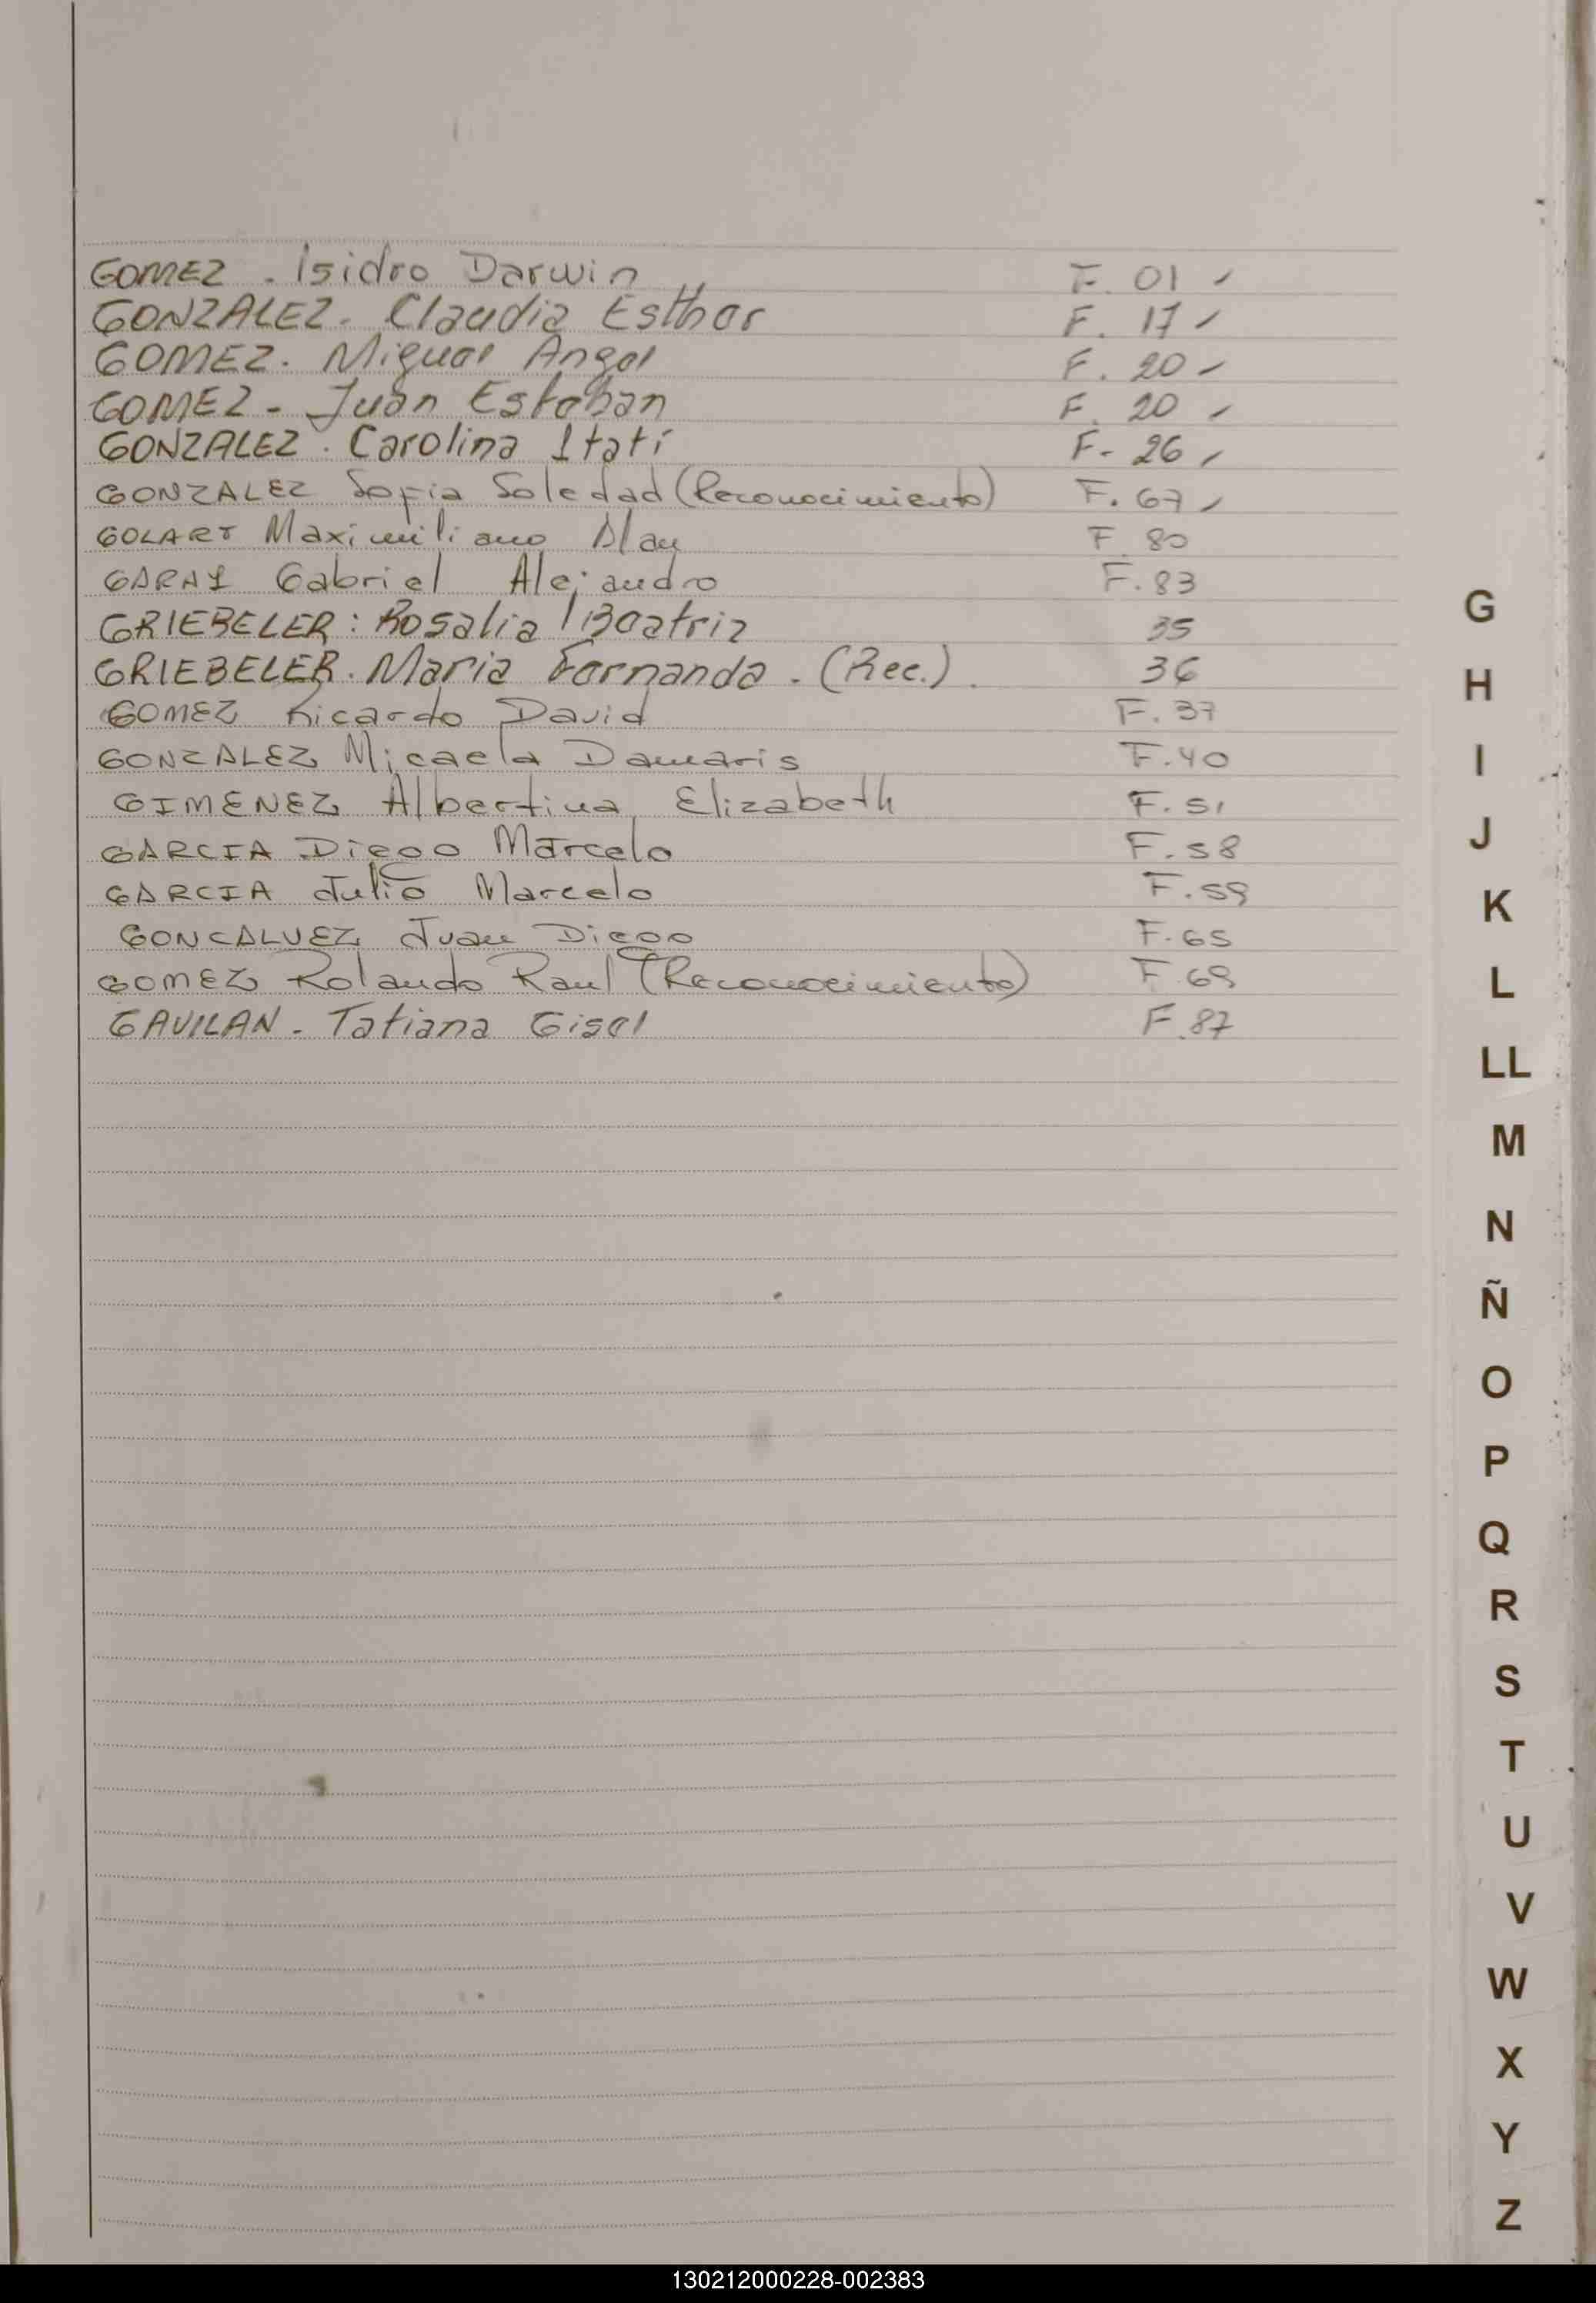 GOMEZ . Isidro Darwin F. 01 -
GONZALEZ. Claudia Esther F. 17 -
GOMEZ. Miguel Angel F. 20 -
GOMEZ - Juan Esteban F. 20 -
GONZALEZ . Carolina Itatí F- 26 -
GONZALEZ Sofia Soledad (Reconocimiento) F. 67 -
GOLART Maximiliano Alan F 80
GARAY Gabriel Alejandro F. 83
GRIEBELER : Rosalia Beatriz 35
GRIEBELER. Maria Fernanda . (Rec.). 36
GOMEZ Ricardo David F. 37
GONZALEZ Micaela Damaris F. 40
GIMENEZ Albertina Elizabeth F. 51
GARCIA Diego Marcelo F. 58
GARCIA Julio Marcelo F. 59
GONCALVEZ Juan Diego F. 65
GOMEZ Rolando Raul (Reconocimiento) F 69
GAVILAN - Tatiana Gisel F. 87
G
H
I
J
K
L
LL
M
N
Ñ
O
P
Q
R
S
T
U
V
W
X
Y
Z
130212000228-002383